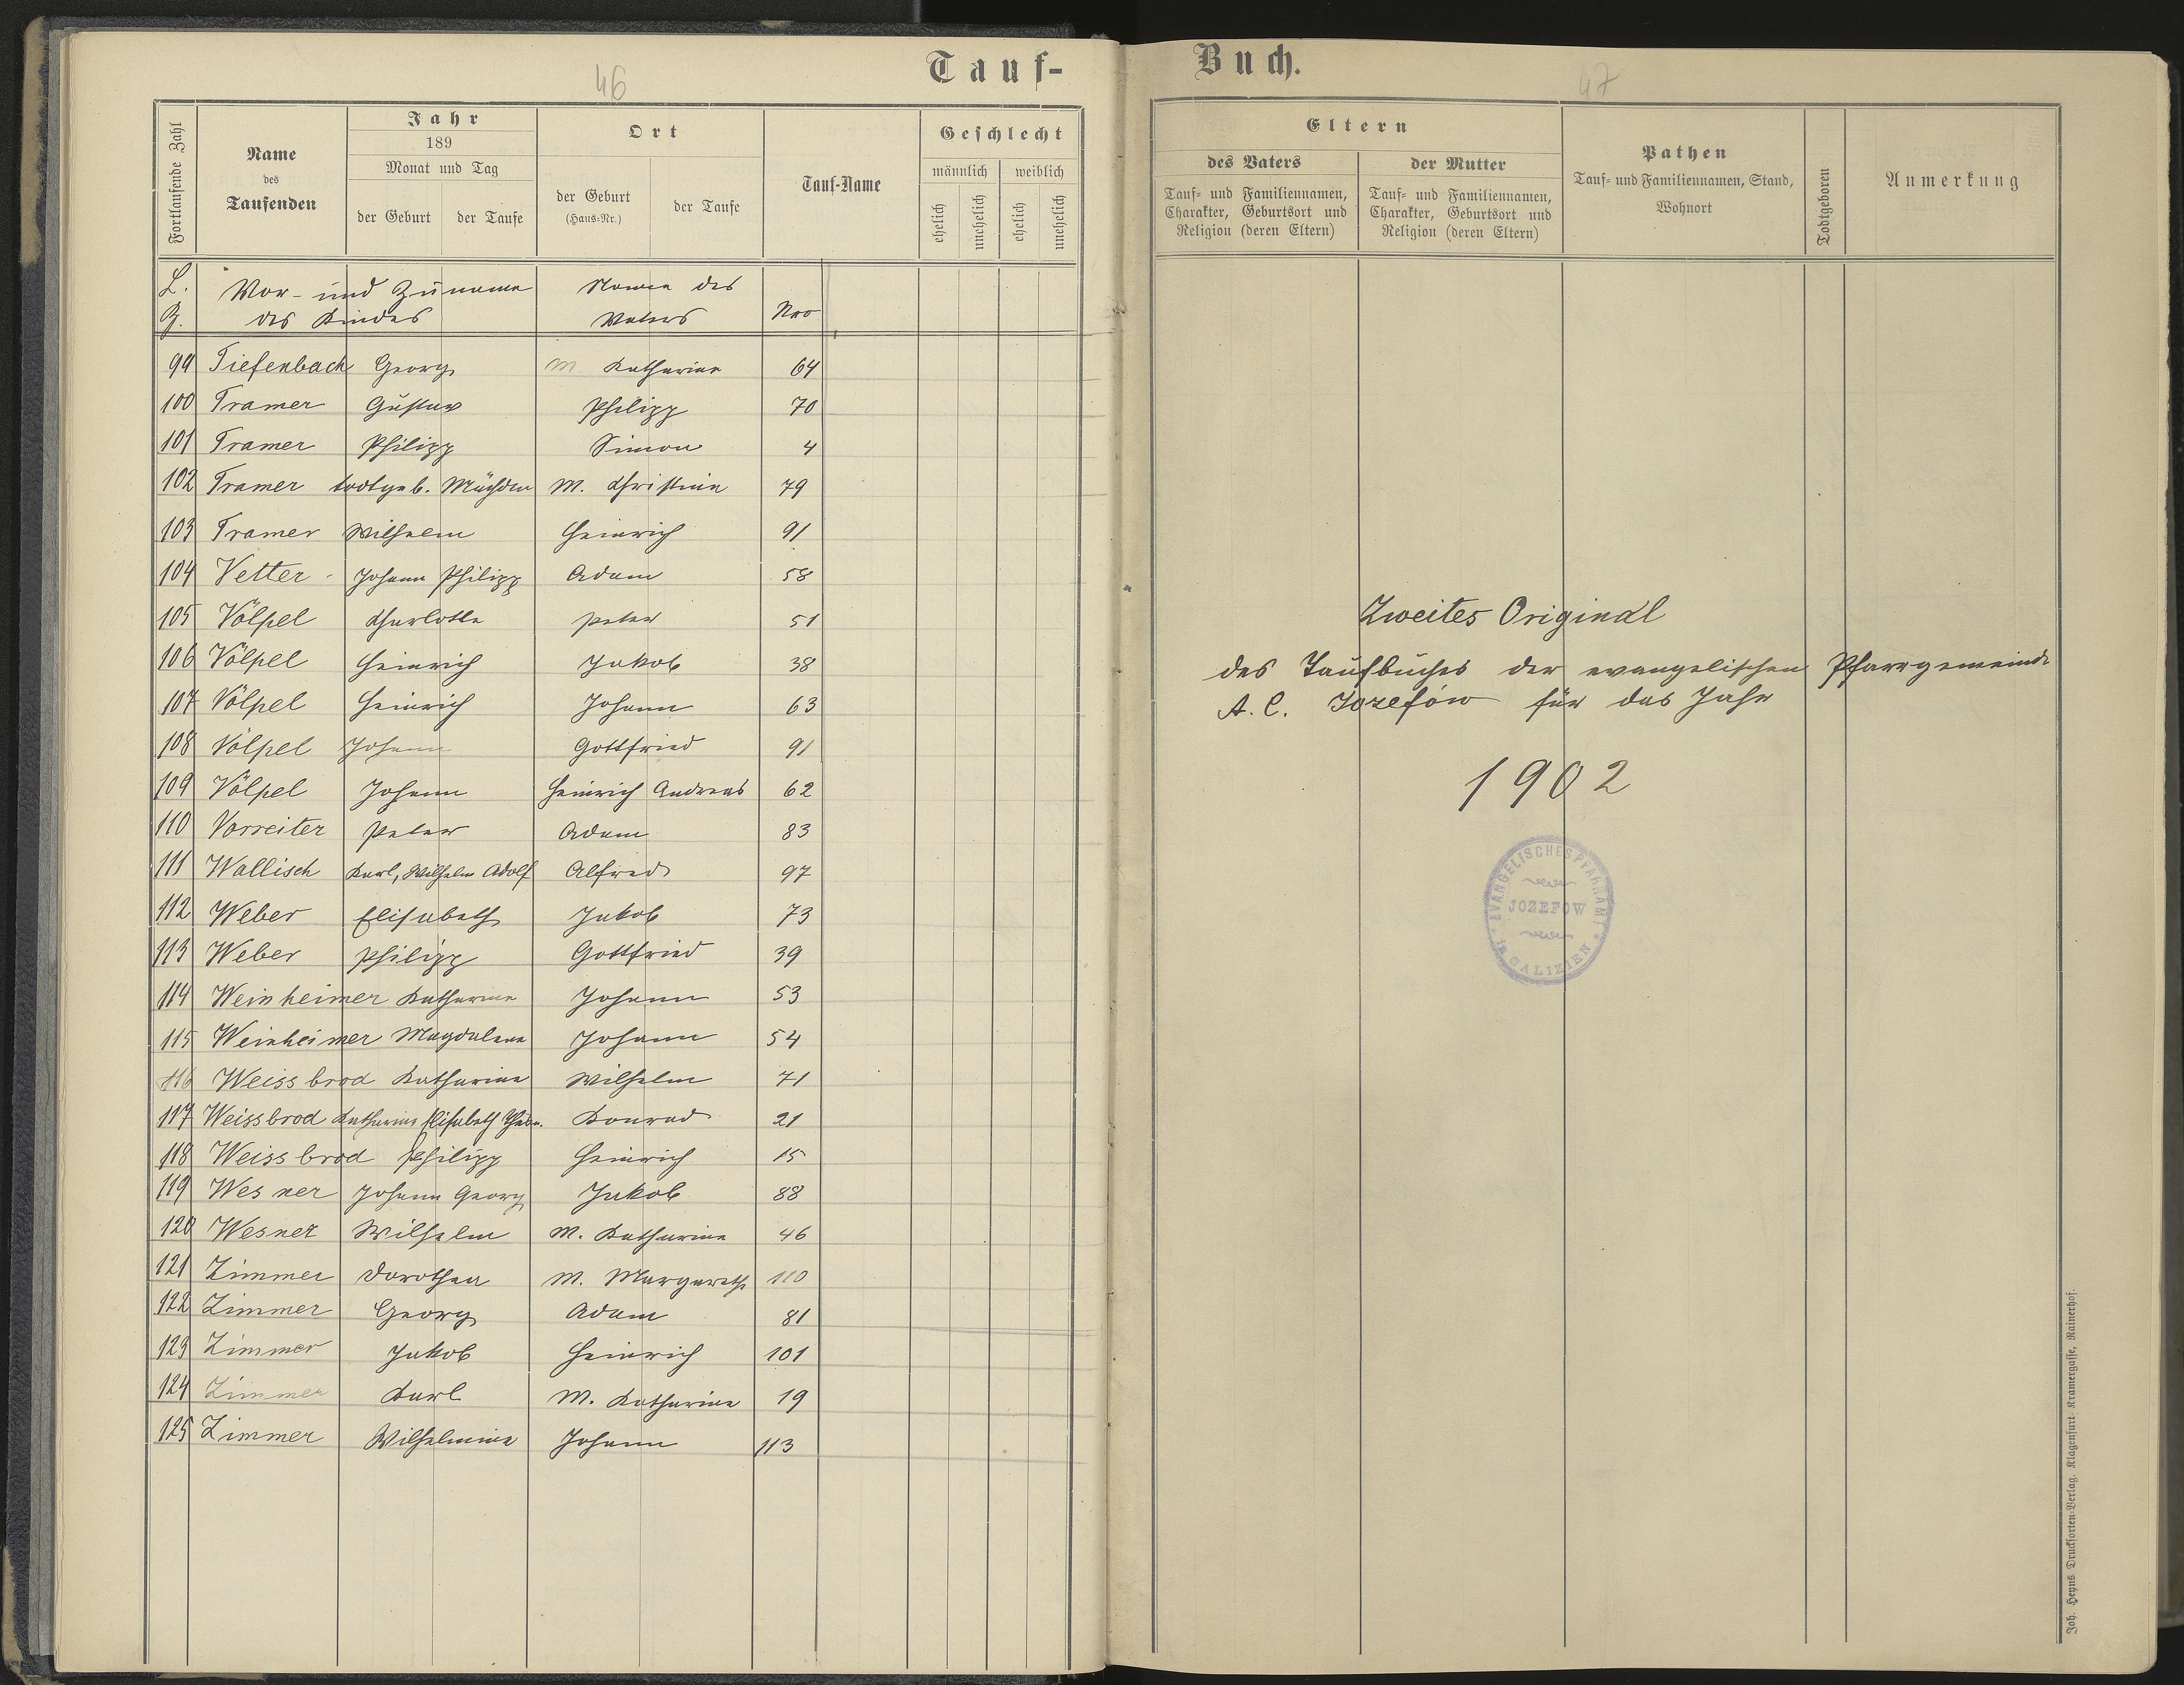 46
Tauf-
Fortlaufende Zahl
Name des Taufenden
Jahr
189
Monat und Tag
der Geburt
der Taufe
Ort
der Geburt
(Haus-Nr.)
der Taufe
Tauf-Name
Geschlecht
männlich
weiblich
ehelich
unehelich
ehelich
unehelich
L. Vor- und Zuname Namen des
Z. des Kindes Vaters Nro
99 Tiefenbach Georg M Katharina 64
100 Tramer Gustav Philipp 70
101 Tramer Philipp Simon 4
102 Tramer todtgeb. Mädchen M. Christina 79
103 Tramer Wilhelm Heinrich 91
104 Vetter Johann Philipp Adam 58
105 Völpel Charlotte Peter 51
106 Völpel Heinrich Jakob 38
107 Völpel Heinrich Johann 63
108 Völpel Johann Gottfried 91
109 Völpel Johann Heinrich Andreas 62
110 Vorreiter Peter Adam 83
111 Wallisch Karl, Wilhelm Adolf Alfred 97
112 Weber Elisabeth Jakob 73
113 Weber Philipp Gottfried 39
114 Weinheimer Katharina Johann 53
115 Weinheimer Magdalena Johann 54
116 Weissbrod Katharina Wilhelm 71
117 Weissbrod Katharina Elisabeth Konrad 21
118 Weissbrod Philipp Heinrich 15
119 Wesner Johann Georg Jakob 88
120 Wesner Wilhelm M. Katharina 46
121 Zimmer Dorothea M. Margareth 110
122 Zimmer Georg Adam 81
123 Zimmer Jakob Heinrich 101
124 Zimmer Karl M. Katharina 19
125 Zimmer Wilhelmine Johann 113
Buch.
47
Eltern
des Vaters
Tauf- und Familiennamen,
Charakter, Geburtsort und
Religion (deren Eltern)
der Mutter
Tauf- und Familiennamen,
Charakter, Geburtsort und
Religion (deren Eltern)
Pathen
Tauf- und Familiennamen, Stand,
Wohnort
Todtgeboren
Anmerkung
Zweites Original
des Taufbuches der evangelischen Pfarrgemeinde
A. C. Jozefów für das Jahr
1902
EVANGELISCHES PFARRAMT
JOZEFOW
IN GALIZIEN
Joh. Heyns Drucksorten-Verlag, Klagenfurt, Kramergasse, Rainerhof.